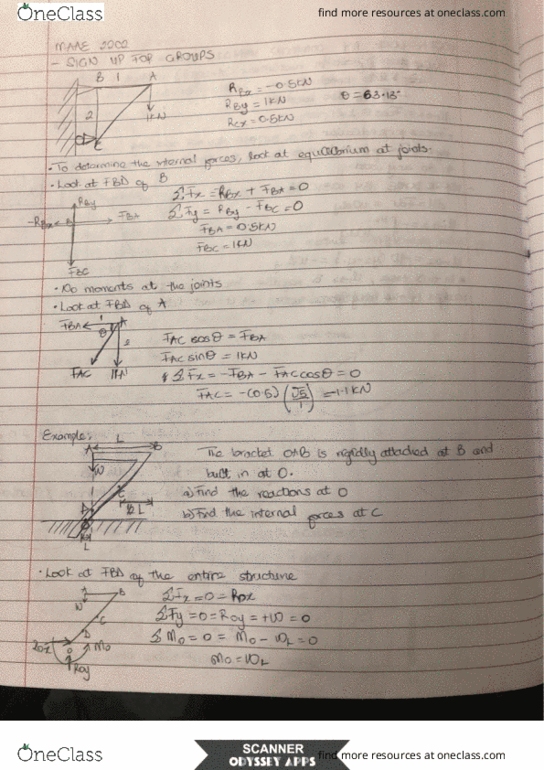 OneClass
find more resources at oneclass.com
MAAE 2002
- SIGN UP FOR GROUPS
B 1 A
2
1KN
C
RBx = -0.5KN
RBy = 1KN
RCx = 0.5KN
θ = 63.13°
• To determine the internal forces, look at equilibrium at joints.
• Look at FBD of B
RBy
-RBx
FBA
FBC
ΣFx = RBx + FBA = 0
ΣFy = RBy - FBC = 0
FBA = 0.5KN
FBC = 1KN
• No moments at the joints
• Look at FBD of A
FBA
1
A
θ
2
FAC
1KN
FAC cosθ = FBA
FAC sinθ = 1KN
ΣFx = -FBA - FAC cosθ = 0
FAC = -(0.5) (√5/1) = -1.1KN
Example:
L
A
B
W
C
L
The bracket OAB is rigidly attached at B and
built in at O.
a) Find the reactions at O
b) Find the internal forces at C
• Look at FBD of the entire structure
B
W
C
D
O
Mo
Roy
ΣFx = 0 = Rox
ΣFy = 0 = Roy = +W = 0
ΣMo = 0 = Mo - WL = 0
Mo = WL
OneClass
SCANNER
ODYSSEY APPS
find more resources at oneclass.com